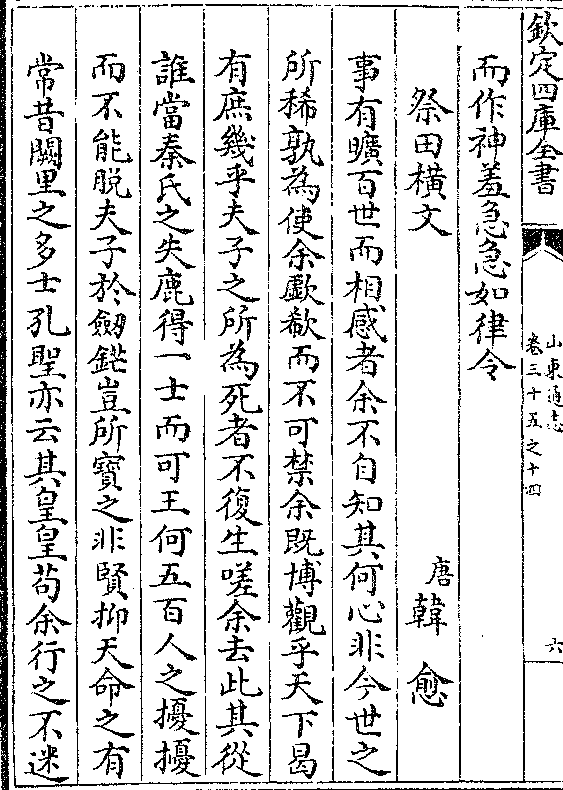 欽定四庫全書
山東通志
卷三十五之十四
六
而作神羞急急如律令
祭田橫文
唐韓愈
事有曠百世而相感者余不自知其何心非今世之
所稀孰為使余歔欷而不可禁余既博觀乎天下曷
有庶幾乎夫子之所為死者不復生嗟余去此其從
誰當秦氏之失鹿得一士而可王何五百人之擾擾
而不能脱夫子於劒鋩豈所寶之非賢抑天命之有
常昔闕里之多士孔聖亦云其皇皇茍余行之不迷